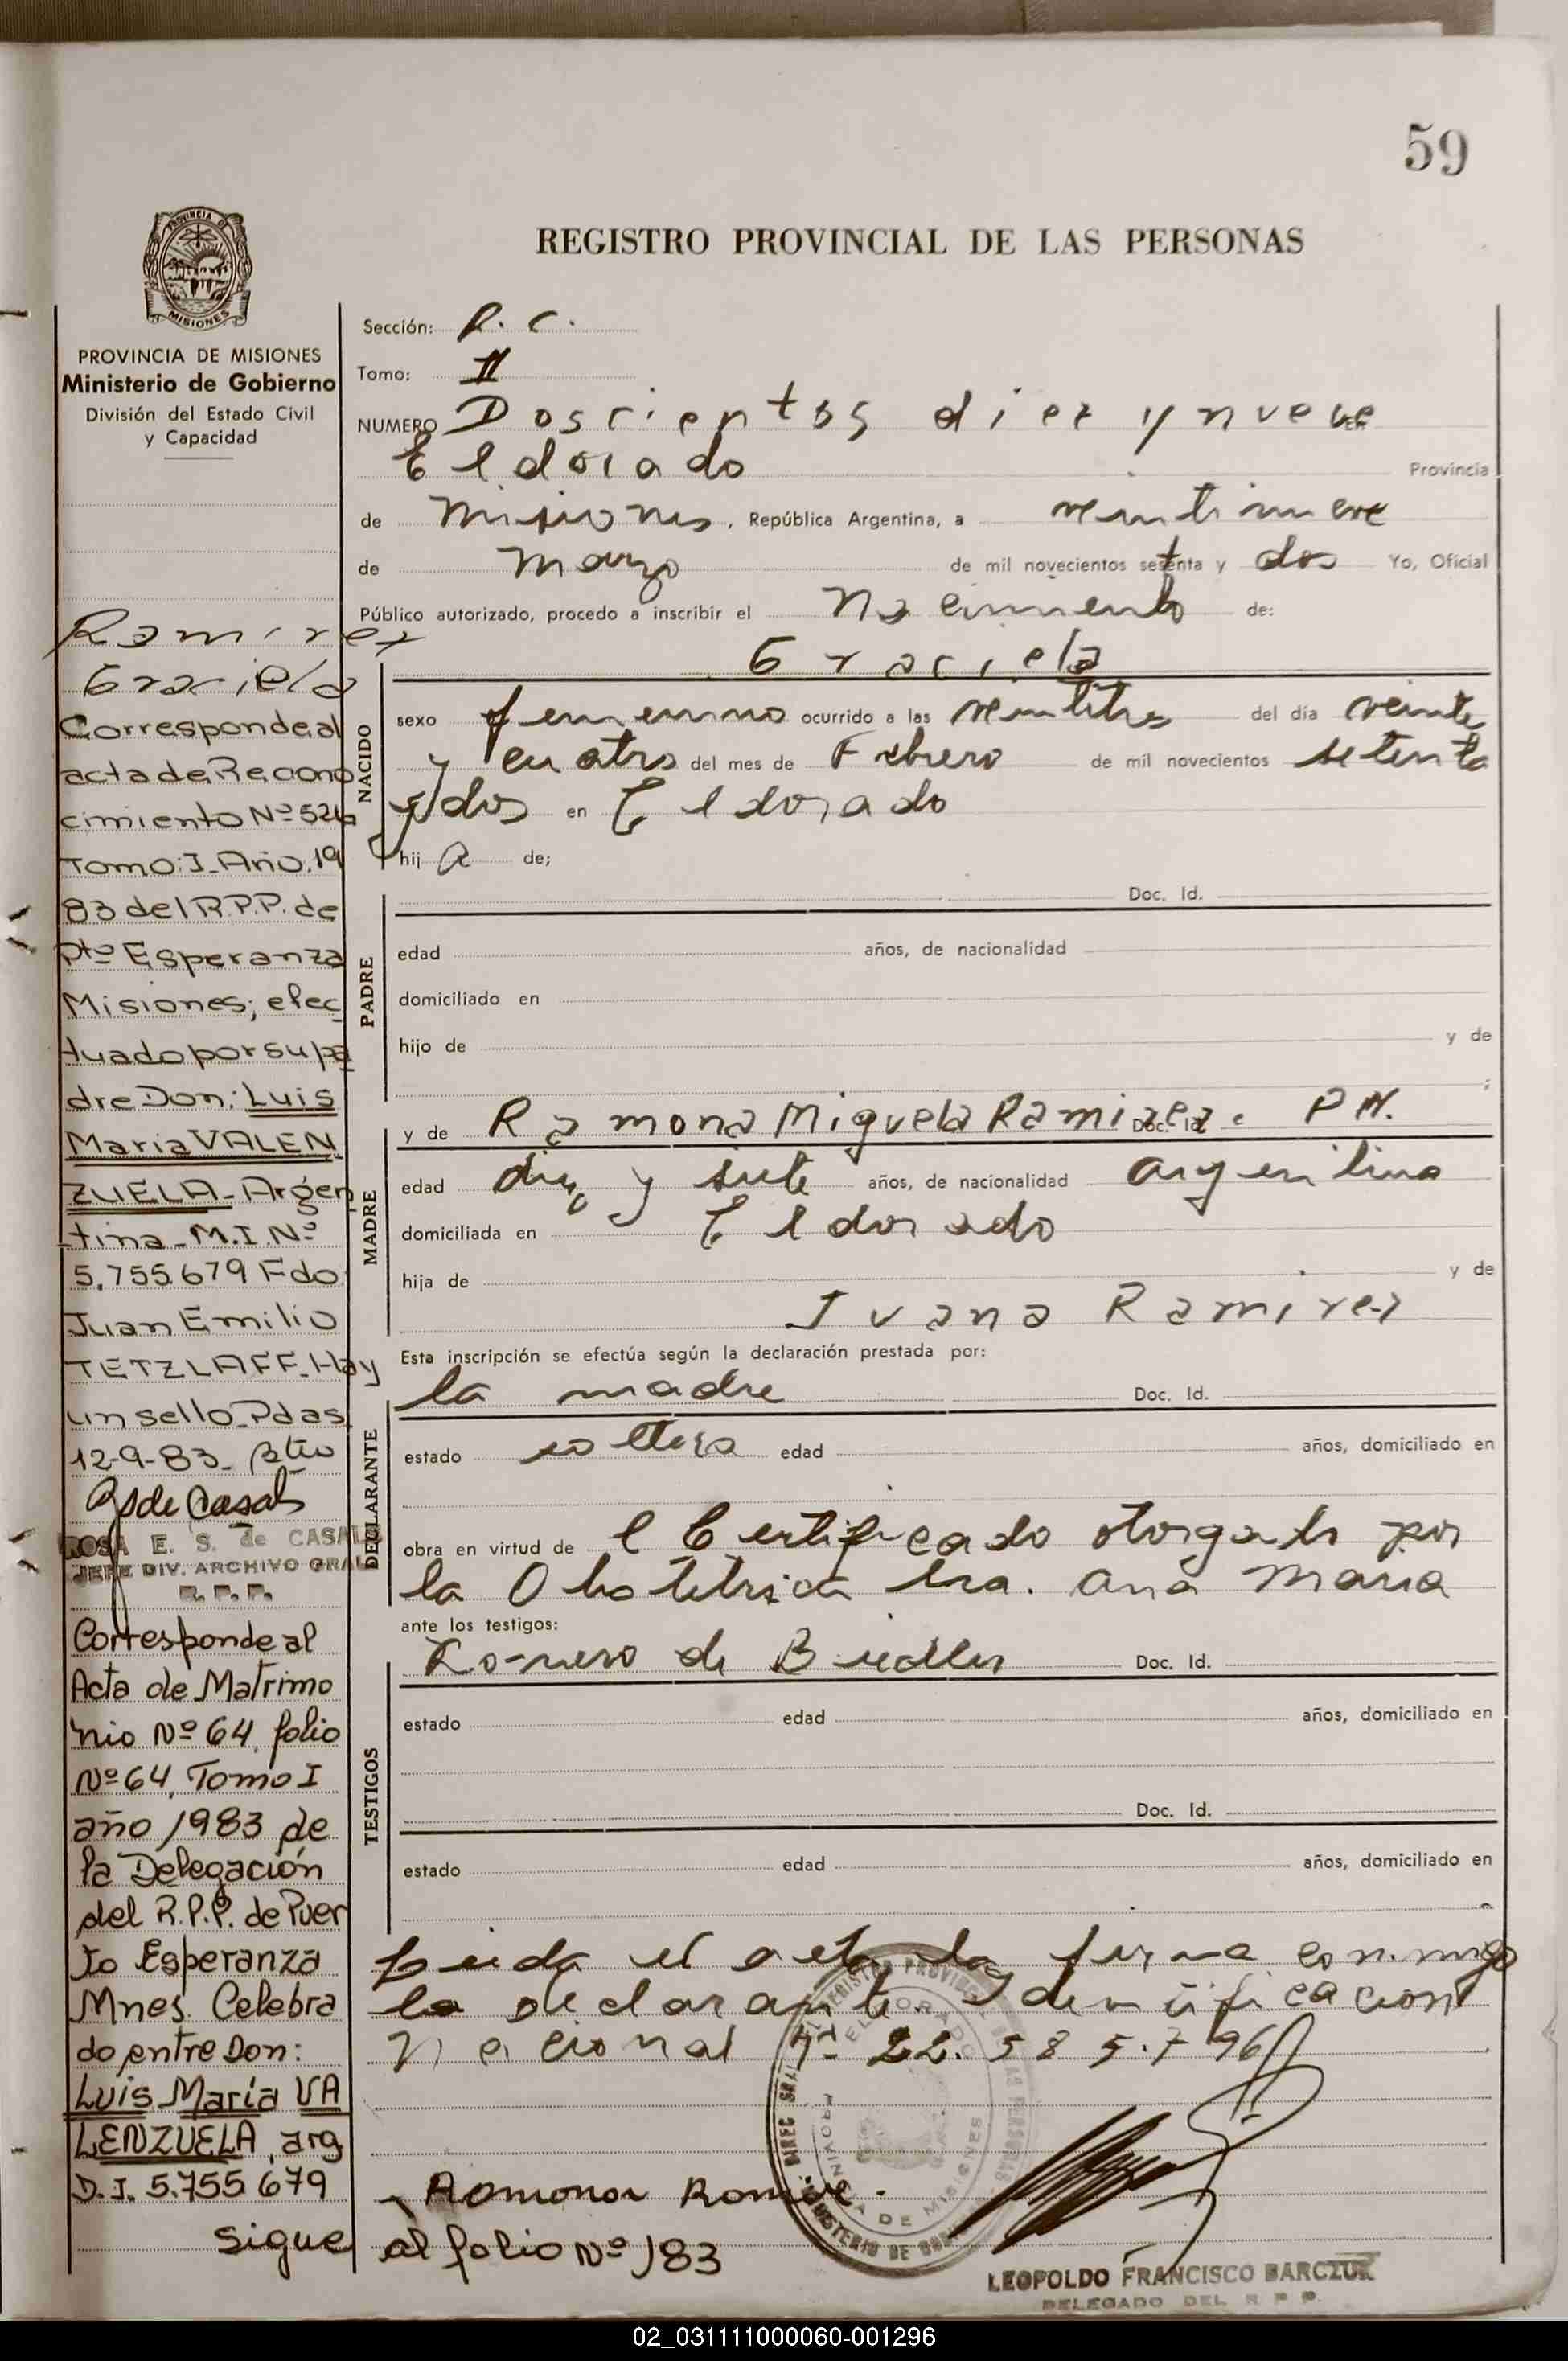 59
REGISTRO PROVINCIAL DE LAS PERSONAS
PROVINCIA DE MISIONES
Ministerio de Gobierno
División del Estado Civil
y Capacidad
Ramirez
Graciela
Corresponde al
acta de Recono
cimiento Nº 526
Tomo: I_Año.19
83 del R.P.P. de
Pto Esperanza
Misiones; efec
tuado por su pa
dre Don: Luis
Maria VALEN
ZUELA - Argen
tina - M.I.Nº
5.755679 Fdo
Juan Emilio
TETZLAFF. Hay
un sello_Pdas
12-9-83_
ROSA E. S. de CASALS
JEFE DIV. ARCHIVO GRAL
R. P. P.
Corresponde al
Acta de Matrimo
nio Nº 64, folio
Nº 64, Tomo I
año 1983 de
la Delegación
del R.P.P. de Puer
to Esperanza
Mnes. Celebra
do entre Don:
Luis María VA
LENZUELA, arg
D.I. 5.755.679
sigue al folio Nº 183
Sección: R. C.
Tomo: II
NUMERO Doscientos diez y nueve
Eldorado Provincia
de Misiones, República Argentina, a veintinueve
de Marzo de mil novecientos setenta y dos Yo, Oficial
Público autorizado, procedo a inscribir el Nacimiento de:
Graciela
NACIDO
sexo femenino ocurrido a las veintitres del día veinte
y cuatro del mes de Febrero de mil novecientos setenta
y dos en Eldorado
hij a de;
PADRE
Doc. Id.
edad años, de nacionalidad
domiciliado en
hijo de y de
;
MADRE
y de Ramona Miguela Ramirez. Doc. Id. P.N.
edad diez y siete años, de nacionalidad argentina
domiciliada en Eldorado
hija de y de
Juana Ramirez
Esta inscripción se efectúa según la declaración prestada por:
DECLARANTE
la madre Doc. Id.
estado soltera edad años, domiciliado en
obra en virtud de l Certificado otorgado por
la Obstetrica Sra. Ana Maria
ante los testigos:
TESTIGOS
Romero de Doc. Id.
estado edad años, domiciliado en
Doc. Id.
estado edad años, domiciliado en
Leida el acta, la firma conmigo
la declarante. Identificacion
Nacional Nº 22.585.796
Ramona Ramire.
LEOPOLDO FRANCISCO BARCZUK
DELEGADO DEL R P P.
02_031111000060-001296